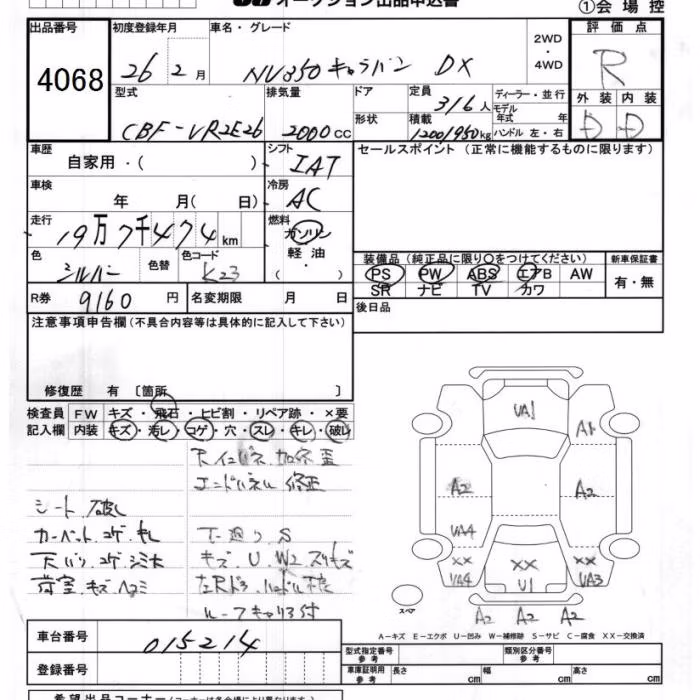 オークション出品申込書
①会場控
出品番号 初度登録年月 車名・グレード 評価点
4068 26年2月 NV350キャラバン DX 2WD・4WD R
型式 排気量 ドア 定員 ディーラー・並行 外装 内装
CBF-VR2E26 2000cc 3/6人 モデル年式 年 D D
形状 積載 1200/950kg ハンドル 左・右
車歴 シフト セールスポイント(正常に機能するものに限ります)
自家用・( ) IAT
車検 冷房
年 月( 日) AC
走行 燃料
19万7千474km ガソリン
色 色替 色コード 軽油
シルバー K23 ・( )
装備品(純正品に限り○をつけてください) 新車保証書
PS PW ABS エアB AW 有・無
SR ナビ TV カワ
R券 9160円 名変期限 月 日 後日品
注意事項申告欄(不具合内容等は具体的に記入して下さい)
修復歴 有〔箇所 〕
検査員 FW キズ・飛石・ヒビ割・リペア跡・×要
記入欄 内装 キズ・汚レ・コゲ・穴・スレ・キレ・破レ
エンドパネル 修正
シート 破れ
カーペット コゲ キレ 下廻り S
キズ U W2 スリキズ
荷室 キズ ヘコミ
ルーフキャリア付
UA1
A1
A2 A2
UA4
XX XX XX
UA4 U1 UA3
スペア
A2 A2 A2
A−キズ E−エクボ U−凹み W−補修跡 S−サビ C−腐食 XX−交換済
車台番号 015214
登録番号
型式指定番号 参考 類別区分番号 参考
車庫証明用 参考 長さ cm 幅 cm 高さ cm
希望出品コーナー(コーナーは各会場により異なります)